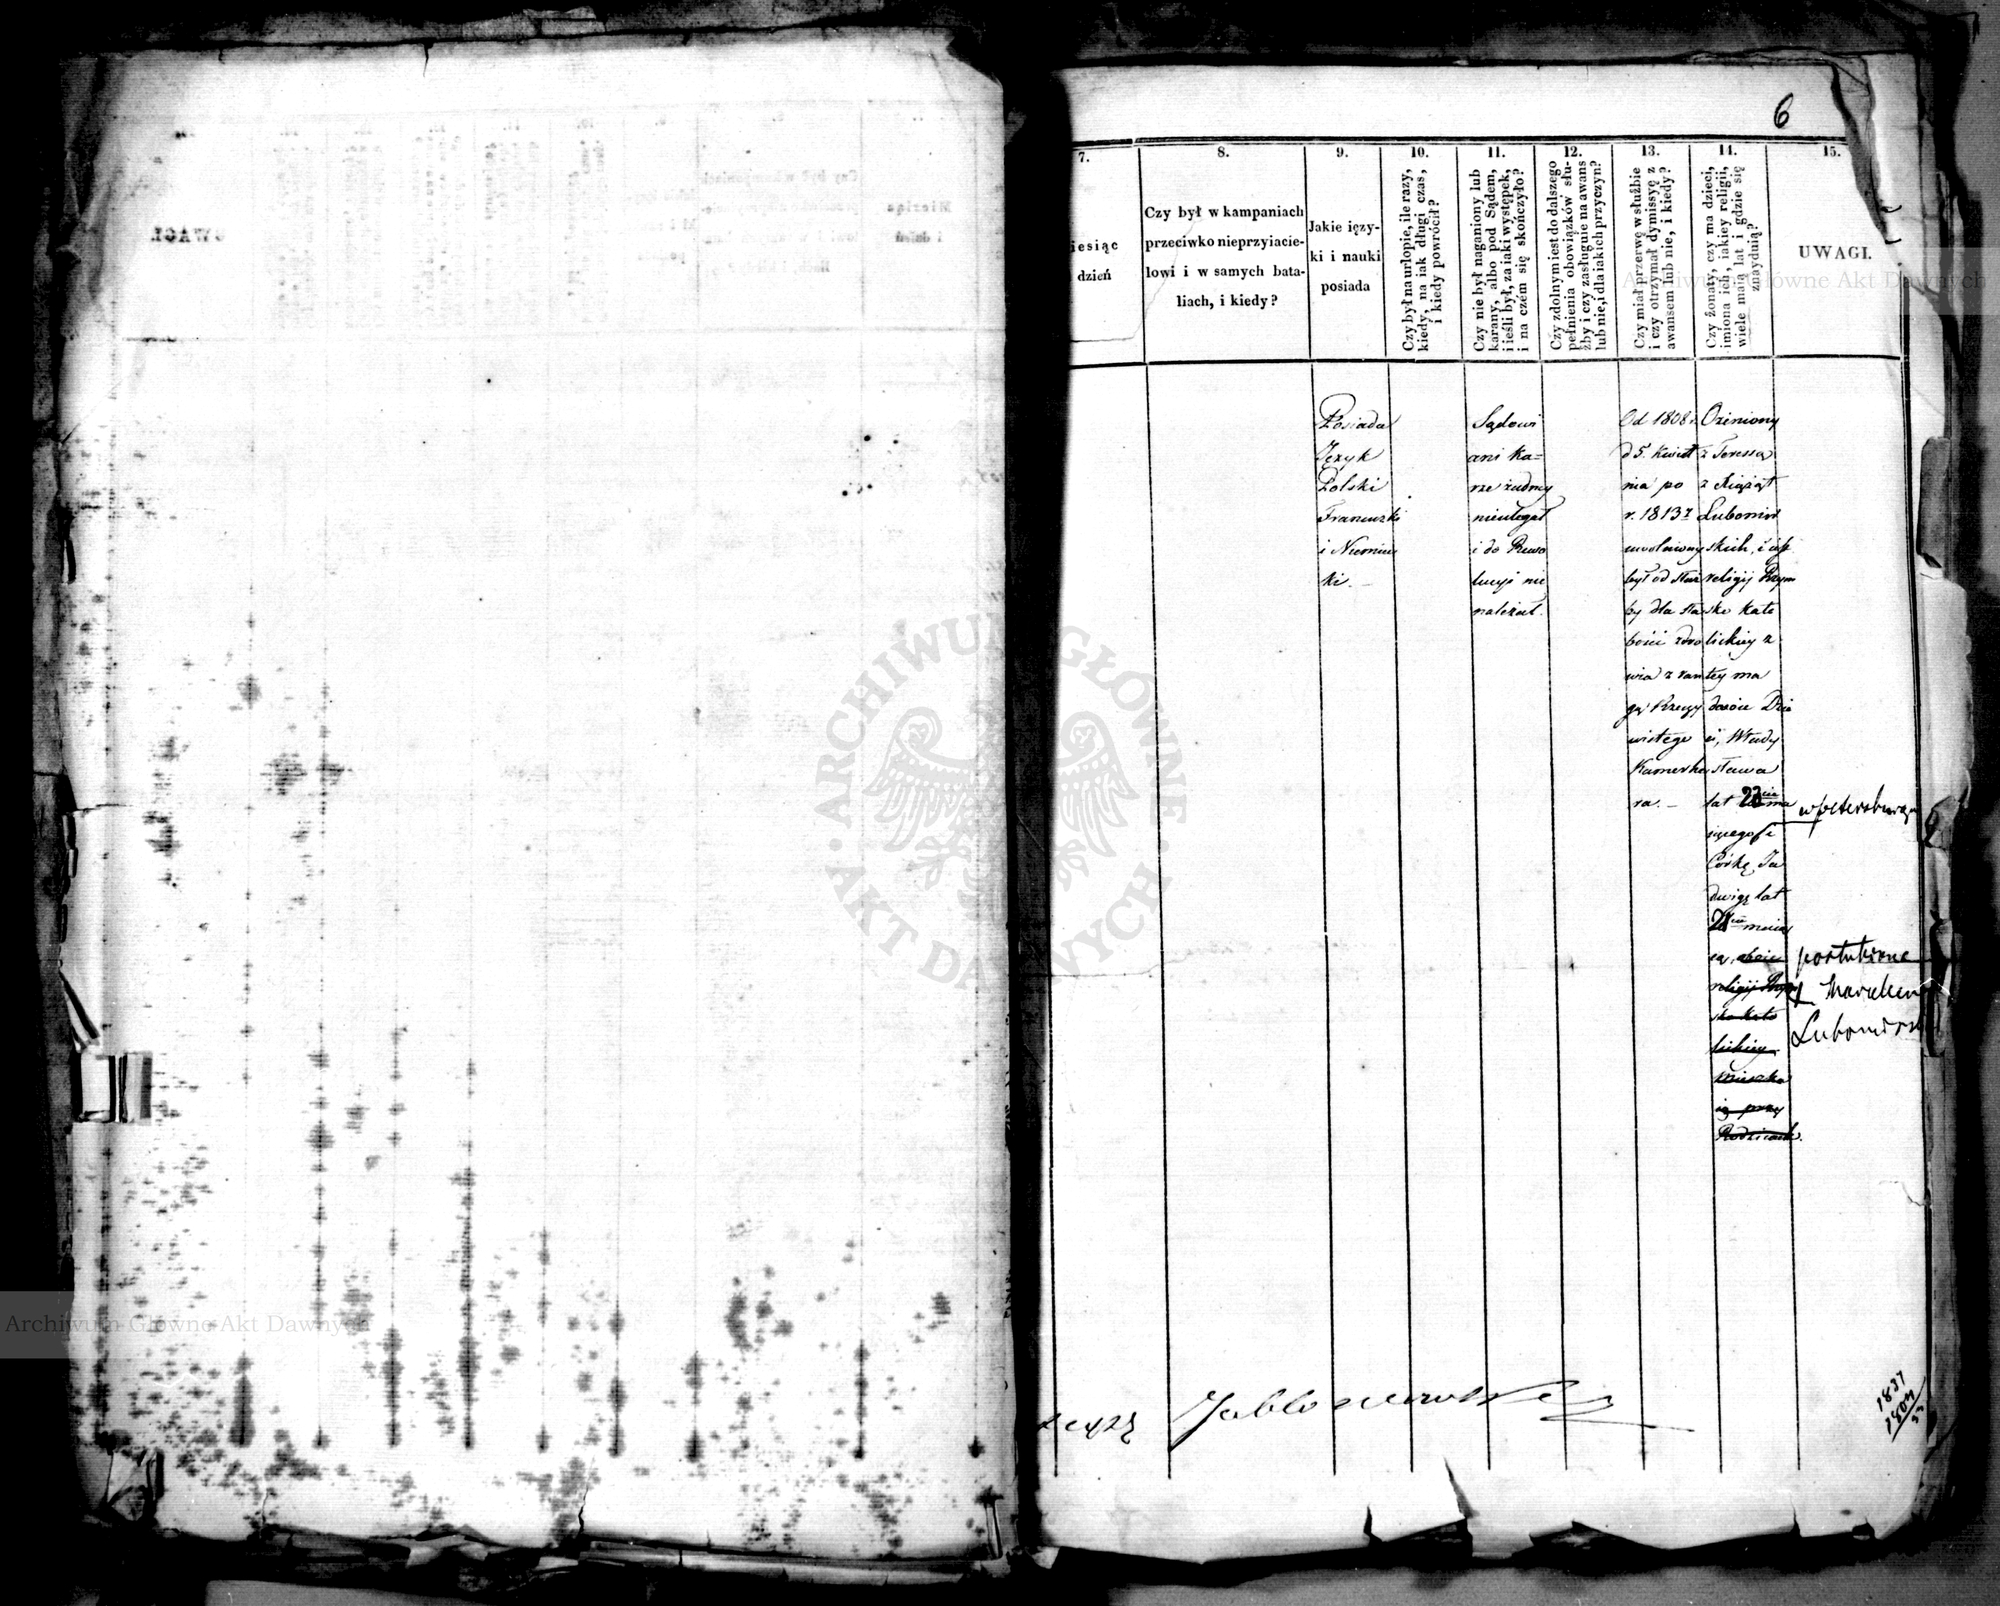 6
7.
iesiąc
dzień
8.
Czy był w kampaniach
przeciwko nieprzyiacie-
lowi i w samych bata-
liach, i kiedy?
9.
Jakie ięzy-
ki i nauki
posiada
10.
Czy był na urlopie, ile razy,
kiedy, na iak długi czas,
i kiedy powrócił?
11.
Czy nie był naganiony lub
karany, albo pod Sądem,
i ieśli był, za iaki występek,
i na czem się skończyło?
12.
Czy zdolnym iest do dalszego
pełnienia obowiązków słu-
żby i czy zasługuie na awans
lub nie, i dla iakich przyczyn?
13.
Czy miał przerwę w służbie
i czy otrzymał dymissyę z
awansem lub nie, i kiedy?
14.
Czy żonaty, czy ma dzieci,
imiona ich, iakiey religii,
wiele maią lat i gdzie się
znayduią?
15.
UWAGI.
Posiada
Język
Polski
Francuzki
i Niemiec
ki. –
Sądowi
ani ka=
rze żadney
nieulegał
i do Rewo
lucyi nie
należał.
Od 1808 r.
d 5. Kwiet
nia po
r. 1813
uwolniony
był od służ
by dla sła
bości zdro
wia z ran
gą Rzeczy
wistego
Kamerhe
ra. –
Ożeniony
z Teressą
z Xiążąt
Lubomir
skich,
religij Rzym
sko Kato
lickiey z
tey ma
dwoie Dzie
ci, Włady
sława
lat 23 ma
iącego i
Córkę Ja
dwigę lat
maią
cą, obóie
religij Rzym
sko Kato
lickiey
mieszka
ią przy
Rodzicach.
w Petersburgu
Lubomirs
Jabłonowski
1837
Archiwum Główne Akt Dawnych
Archiwum Główne Akt Dawnych
ARCHIWUM GŁÓWNE · AKT DAWNYCH ·